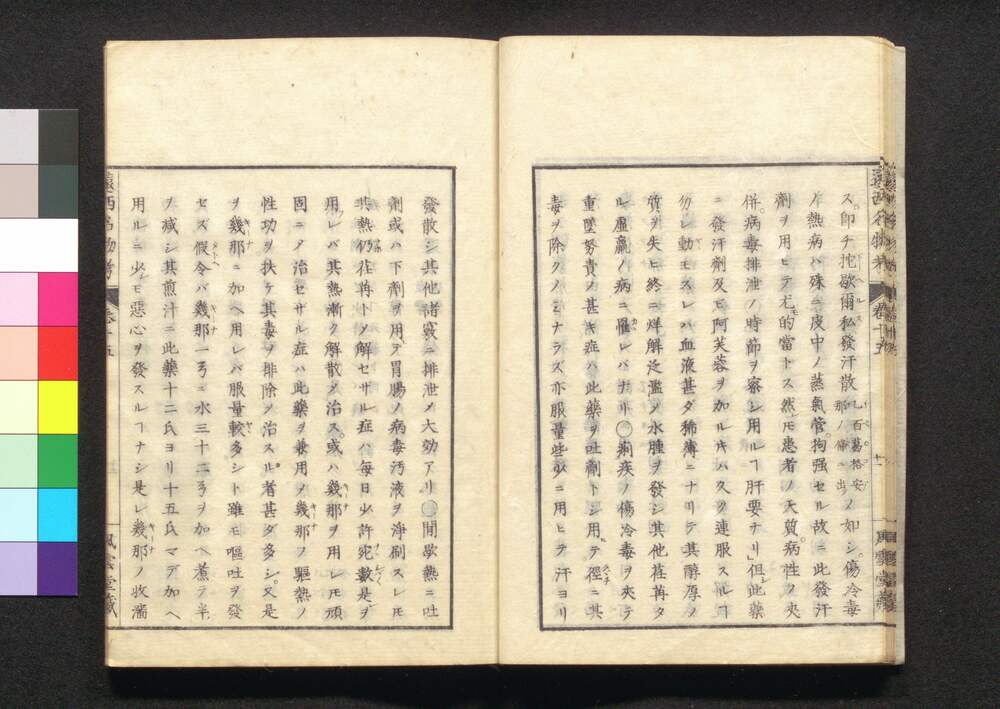 ス。即チ抱歇爾私發汗散吐百葛格安那ノ條ニ出ノ如シ。傷冷毒
ノ熱病ハ殊ニ皮中ノ蒸氣管。拘强セル故ニ此發汗
劑ヲ用ヒテ尤モ的當トス然レ𪜈患者ノ天質。病性ノ夾
併。病毒排泄ノ時節ヲ察シ用ルヿ肝要ナリ」但シ此藥
ニ發汗劑及ヒ阿芙蓉ヲ加ルキハ久ク連服スルヿ
勿レ動モスレハ血液甚ダ稀薄ニナリテ其酵厚ノ
質ヲ失ヒ終ニ烊解泛濫シテ水腫ヲ發シ其他荏苒タ
ル虛羸ノ病ニ罹レバナリ○痢疾ノ傷冷毒ヲ夾テ
重墜努責ノ甚キ症ハ此藥ヲ吐劑トシ用ヒテ徑ニ其
毒ヲ除クノミナラズ亦服量些少ニ用ヒテ汗ヨリ
發散シ其他諸竅ニ排泄シテ大効アリ○間歇熱ニ吐
劑或ハ下劑ヲ用ヒテ胃腸ノ病毒汚液ヲ淨刷スレ𪜈
其熱仍荏苒トシテ解セサル症ハ每日少許宛數是ヲ
用レバ其熱漸ク解散シテ治ス。或ハ幾那ヲ用レ𪜈頑
固ニシテ治セザル症ハ此藥ヲ兼用シテ幾那ノ驅熱ノ
性功ヲ扶ケ其毒ヲ排除シテ治スル者甚ダ多シ。又是
ヲ幾那ニ加ヘ用レバ服量較多シト雖𪜈嘔吐ヲ發
セズ假令バ幾那一ヲニ水三十二ヲヲ加ヘ煮テ半
ヲ減シ其煎汁ニ此藥十二氏ヨリ十五氏マデ加ヘ
用ルニ少シモ惡心ヲ發スルヿナシ是レ幾那ノ收濇
遠西名物考
卷十五
風雲堂藏